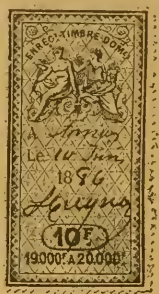 ENREG. TIMBRE-DOM.
à
Le 10 Juin
1886
10F
19.000F A 20.000F